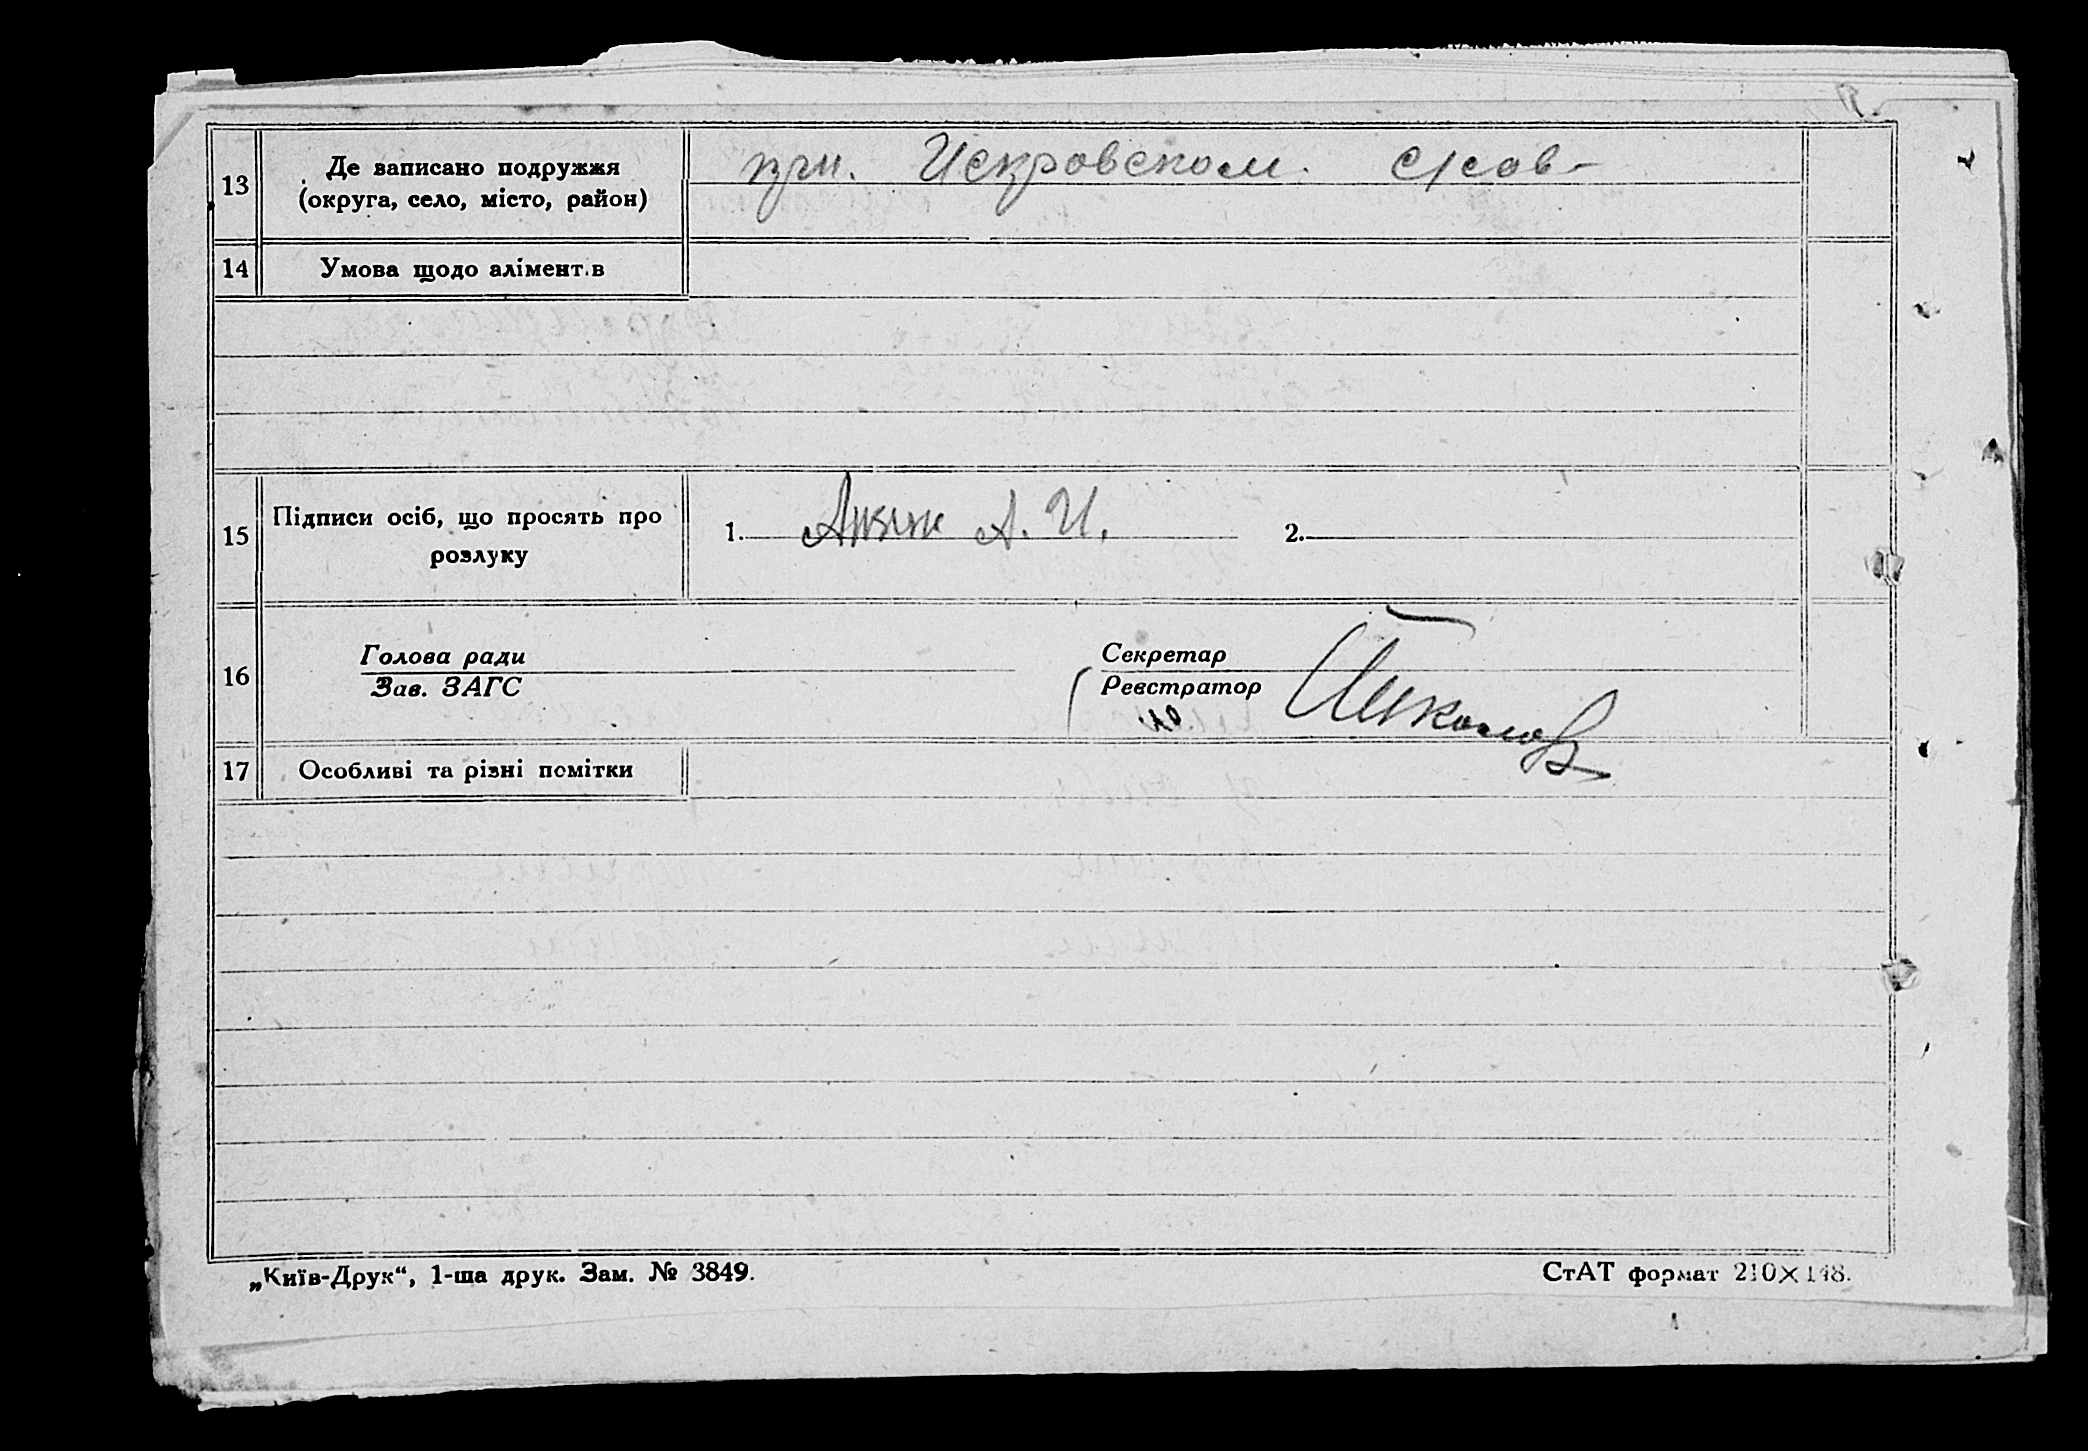 13
Де записано подружжя
(округа, село, місто, район)
при. Искровском с/сов-
14
Умова щодо алімент.в
15
Підписи осіб, що просять про
розлуку
1. А. И.
2.
16
Голова ради
Зав. ЗАГС
Секретар
Реєстратор
17
Особливі та різні помітки
„Київ-Друк“, 1-ша друк. Зам. № 3849.
СтАТ формат 210×148.